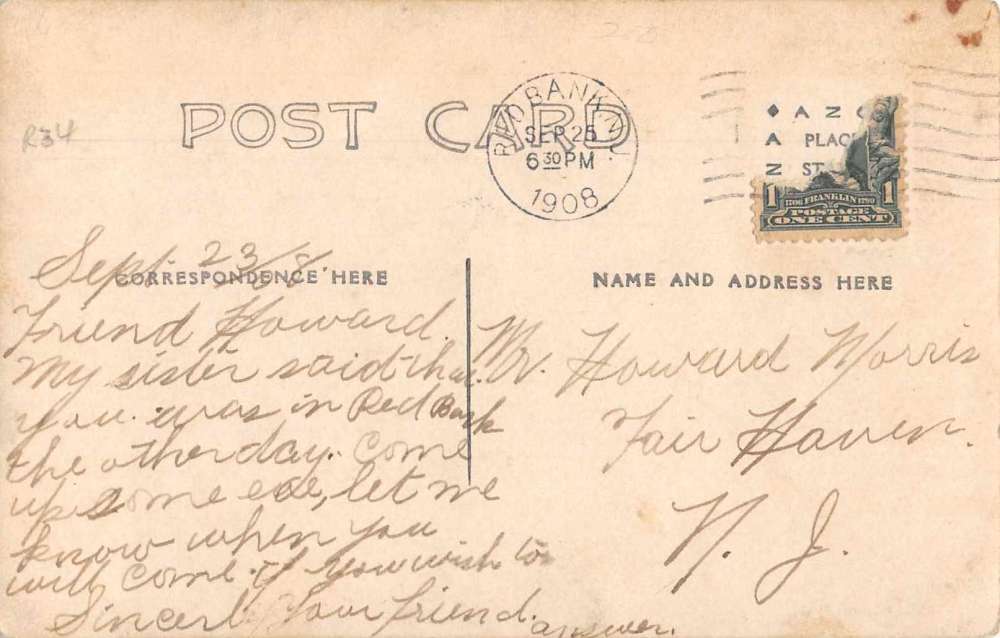 R34
POST CARD
RED BANK, N.J.
SEP 25
6 30 PM
1908
◆ A Z O
A PLACE
Z ST
1 1706 FRANKLIN 1790 1
POSTAGE
ONE CENT
CORRESPONDENCE HERE
NAME AND ADDRESS HERE
Sept. 23/8
Friend Howard.
My sister said that
you was in Red Bank
the other day. Come
up some eve, let me
know when you
will come. if you wish to
Sincerl. Your friend.
answer.
Mr. Howard Morris
Fair Haven.
N. J.